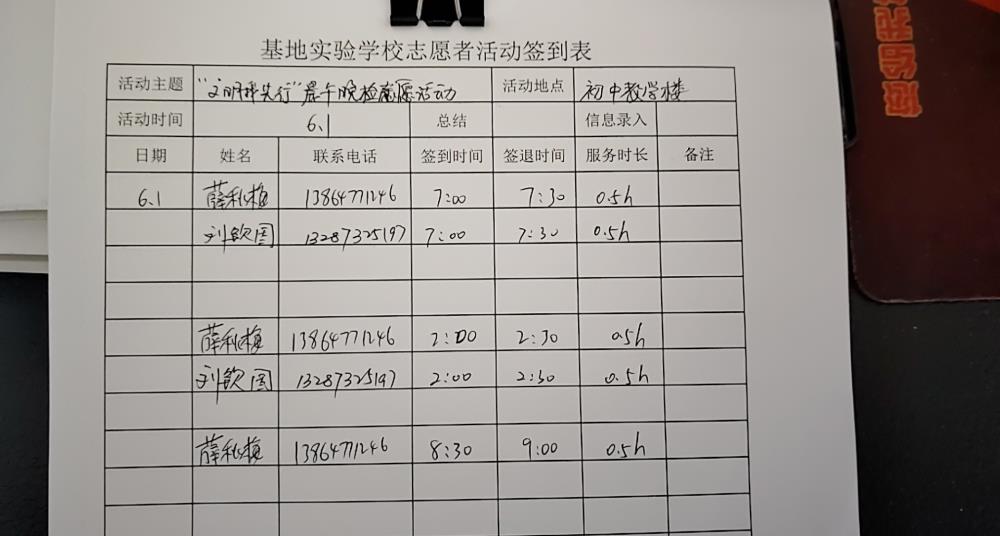 基地实验学校志愿者活动签到表
活动主题 "文明伴我行"晨午晚检志愿活动 活动地点 初中教学楼
活动时间 6.1 总结 信息录入
日期 姓名 联系电话 签到时间 签退时间 服务时长 备注
6.1 薛秋梅 13864771246 7:00 7:30 0.5h
刘钦国 13287325197 7:00 7:30 0.5h
薛秋梅 13864771246 2:00 2:30 0.5h
刘钦国 13287325197 2:00 2:30 0.5h
薛秋梅 13864771246 8:30 9:00 0.5h